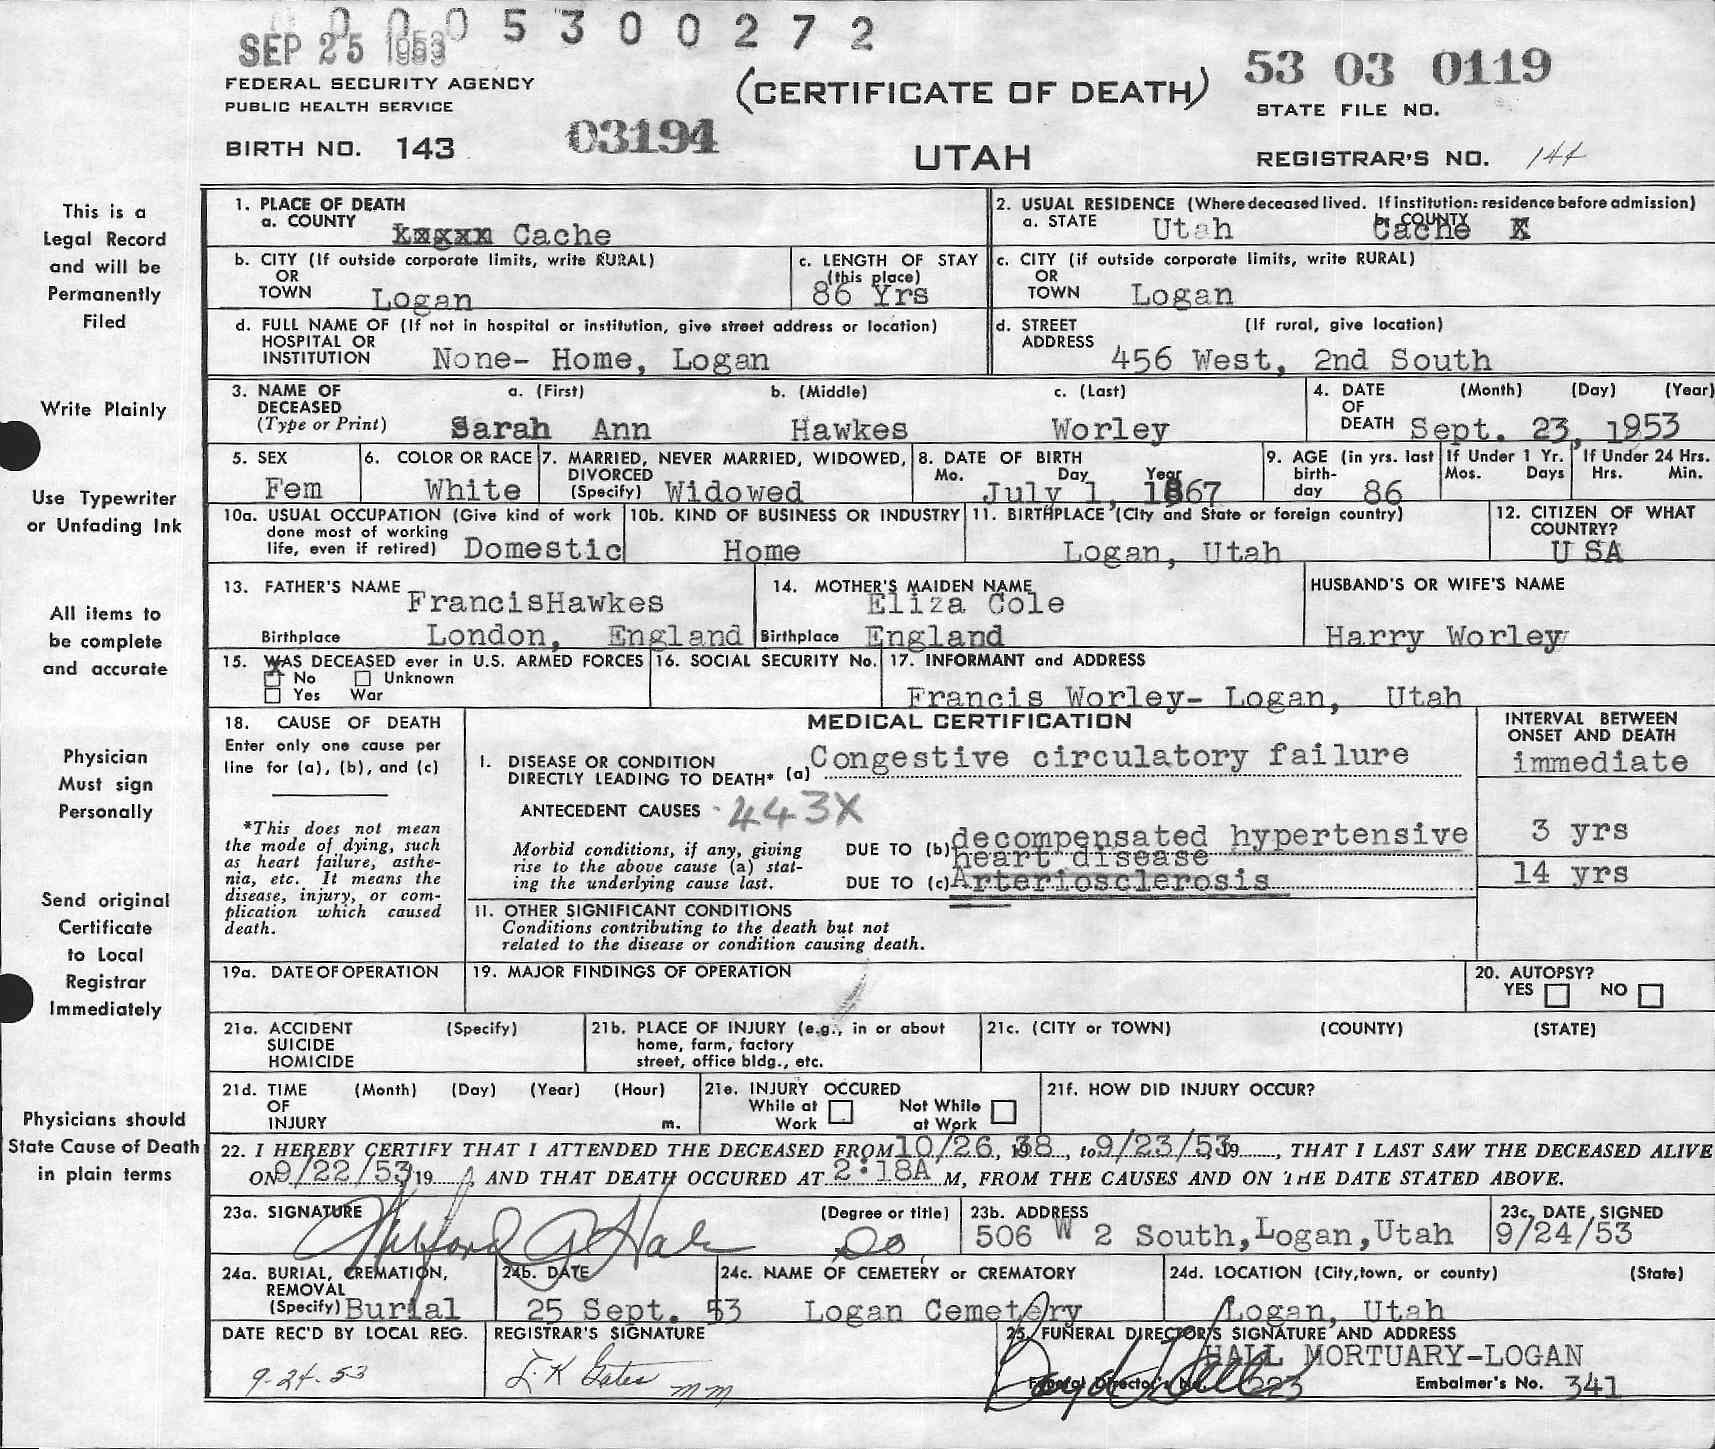 0 0 0 5 3 0 0 2 7 2
SEP 25 1953
FEDERAL SECURITY AGENCY
PUBLIC HEALTH SERVICE
(CERTIFICATE OF DEATH)
53 03 0119
STATE FILE NO.
BIRTH NO. 143
03194
UTAH
REGISTRAR'S NO. 144
This is a
Legal Record
and will be
Permanently
Filed
Write Plainly
Use Typewriter
or Unfading Ink
All items to
be complete
and accurate
Physician
Must sign
Personally
Send original
Certificate
to Local
Registrar
Immediately
Physicians should
State Cause of Death
in plain terms
1. PLACE OF DEATH
a. COUNTY Cache
2. USUAL RESIDENCE (Where deceased lived. If institution: residence before admission)
a. STATE Utah b. COUNTY Cache X
b. CITY (If outside corporate limits, write RURAL)
OR
TOWN Logan
c. LENGTH OF STAY
(this place)
86 Yrs
c. CITY (if outside corporate limits, write RURAL)
OR
TOWN Logan
d. FULL NAME OF (If not in hospital or institution, give street address or location)
HOSPITAL OR
INSTITUTION None- Home, Logan
d. STREET (If rural, give location)
ADDRESS 456 West, 2nd South
3. NAME OF a. (First) b. (Middle) c. (Last)
DECEASED
(Type or Print) Sarah Ann Hawkes Worley
4. DATE (Month) (Day) (Year)
OF
DEATH Sept. 23, 1953
5. SEX
Fem
6. COLOR OR RACE
White
7. MARRIED, NEVER MARRIED, WIDOWED,
DIVORCED
(Specify) Widowed
8. DATE OF BIRTH
Mo. Day Year
July 1, 1867
9. AGE (in yrs. last
birth-
day 86
If Under 1 Yr.
Mos. Days
If Under 24 Hrs.
Hrs. Min.
10a. USUAL OCCUPATION (Give kind of work
done most of working
life, even if retired) Domestic
10b. KIND OF BUSINESS OR INDUSTRY
Home
11. BIRTHPLACE (City and State or foreign country)
Logan, Utah
12. CITIZEN OF WHAT
COUNTRY?
U SA
13. FATHER'S NAME FrancisHawkes
Birthplace London, England
14. MOTHER'S MAIDEN NAME
Eliza Cole
Birthplace England
HUSBAND'S OR WIFE'S NAME
Harry Worley
15. WAS DECEASED ever in U.S. ARMED FORCES
No Unknown
Yes War
16. SOCIAL SECURITY No.
17. INFORMANT and ADDRESS
Francis Worley- Logan, Utah
18. CAUSE OF DEATH
Enter only one cause per
line for (a), (b), and (c)
*This does not mean
the mode of dying, such
as heart failure, asthe-
nia, etc. It means the
disease, injury, or com-
plication which caused
death.
MEDICAL CERTIFICATION
I. DISEASE OR CONDITION
DIRECTLY LEADING TO DEATH* (a) Congestive circulatory failure
ANTECEDENT CAUSES 443X
Morbid conditions, if any, giving
rise to the above cause (a) stat-
ing the underlying cause last.
DUE TO (b) decompensated hypertensive
heart disease
DUE TO (c) Arteriosclerosis
II. OTHER SIGNIFICANT CONDITIONS
Conditions contributing to the death but not
related to the disease or condition causing death.
INTERVAL BETWEEN
ONSET AND DEATH
immediate
3 yrs
14 yrs
19a. DATE OF OPERATION
19. MAJOR FINDINGS OF OPERATION
20. AUTOPSY?
YES NO
21a. ACCIDENT (Specify)
SUICIDE
HOMICIDE
21b. PLACE OF INJURY (e.g., in or about
home, farm, factory
street, office bldg., etc.
21c. (CITY or TOWN) (COUNTY) (STATE)
21d. TIME (Month) (Day) (Year) (Hour)
OF
INJURY m.
21e. INJURY OCCURED
While at Work Not While at Work
21f. HOW DID INJURY OCCUR?
22. I HEREBY CERTIFY THAT I ATTENDED THE DECEASED FROM 10/26, 38, to 9/23/53 19, THAT I LAST SAW THE DECEASED ALIVE
ON 9/22/53 19, AND THAT DEATH OCCURED AT 2:18A M, FROM THE CAUSES AND ON THE DATE STATED ABOVE.
23a. SIGNATURE (Degree or title)
DO
23b. ADDRESS
506 W 2 South, Logan, Utah
23c. DATE SIGNED
9/24/53
24a. BURIAL, CREMATION,
REMOVAL
(Specify) Burial
24b. DATE
25 Sept. 53
24c. NAME OF CEMETERY or CREMATORY
Logan Cemetery
24d. LOCATION (City, town, or county) (State)
Logan, Utah
DATE REC'D BY LOCAL REG.
9-24-53
REGISTRAR'S SIGNATURE
L K Gates mm
25. FUNERAL DIRECTOR'S SIGNATURE AND ADDRESS
HALL MORTUARY-LOGAN
Funeral Director's No. 223
Embalmer's No. 341